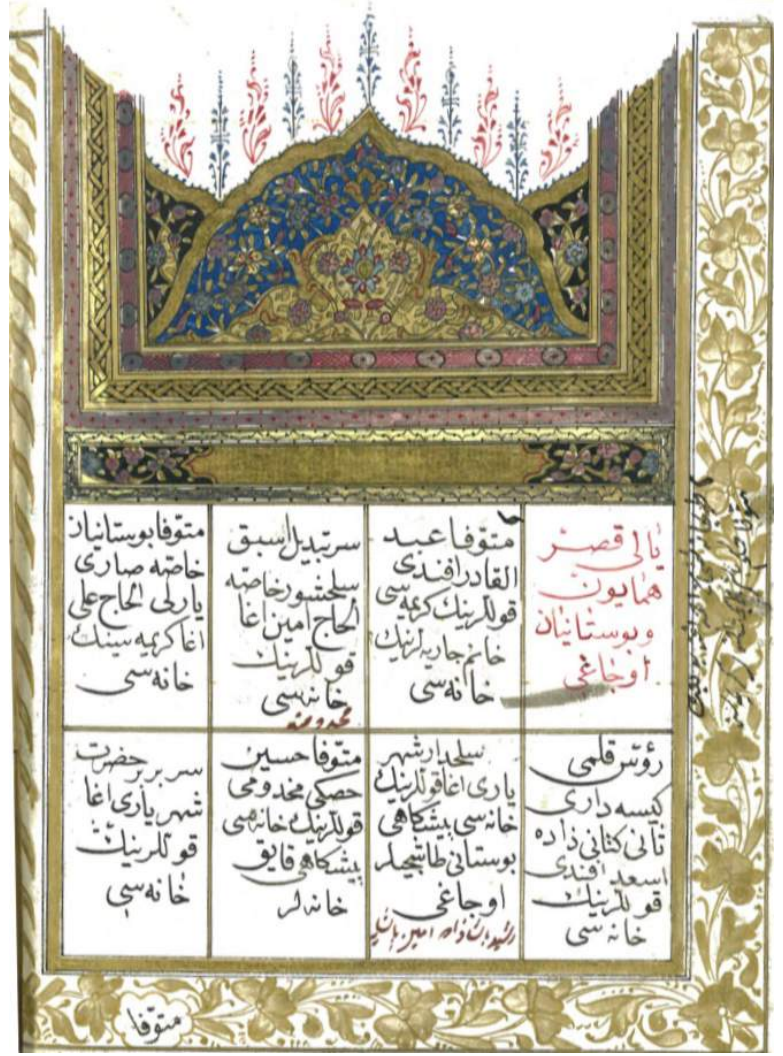 يالى قصر
همايون
وبوستانيان
اوجاغى
متوفا عبد
القادر افندى
قوللرينك كريمه سى
خانم جاريه لرينك
خانه سى
سر تبديل اسبق
سلحشور خاصه
الحاج امين اغا
قوللرينك
خانه سى
متوفا بوستانيان
خاصه صارى
يارلى الحاج على
اغا كريمه سينك
خانه سى
رؤس قلمى
كيسه دارى
ثانى كتانى زاده
اسعد افندى
قوللرينك
خانه سى
سلحدار شهر
يارى اغا قوللرينك
خانه سى پيشكاهى
بوستانى طاشجيلر
اوجاغى
امين
متوفا حسين
حصكى مخدومى
قوللرينك خانه سى
پيشكاهى قايق
خانه لر
سر بربر حضرت
شهر يارى اغا
قوللرينك
خانه سى
متوفا